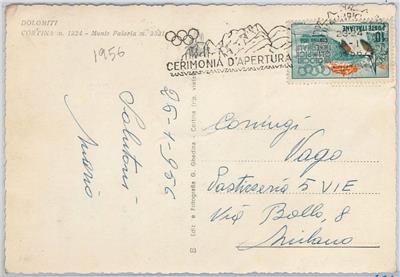 DOLOMITI
CORTINA m. 1224 - Monte Faloria m. 2321
1956
VII
CERIMONIA D'APERTURA
POSTE ITALIANE
Saluti
25-1-956
Ediz. e Fotografia G. Ghedina - Cortina
Coniugi
Vago
Pasticceria 5 VIE
Via Bollo, 8
Milano